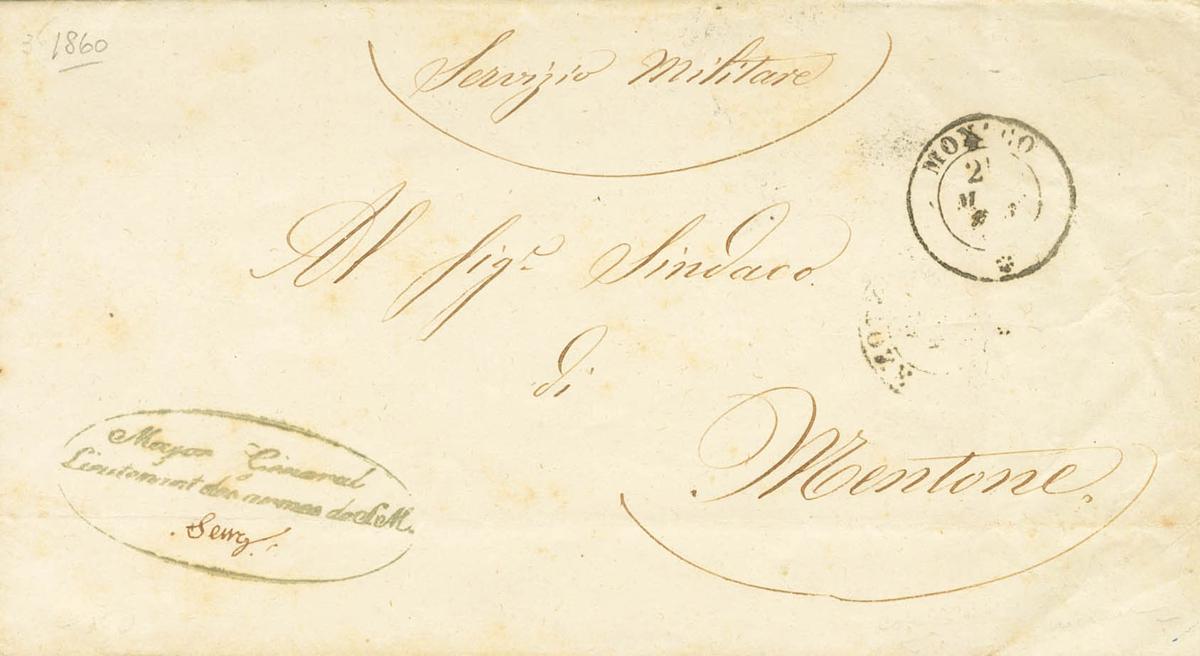 1860
Servizio Militare
MONACO
2
M
Al Sig.r Sindaco
di
Mentone.
Mayor General
Lieutenant des armes de S.M.